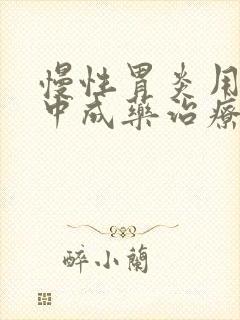 慢性胃炎用
中成藥治療
醉小蘭